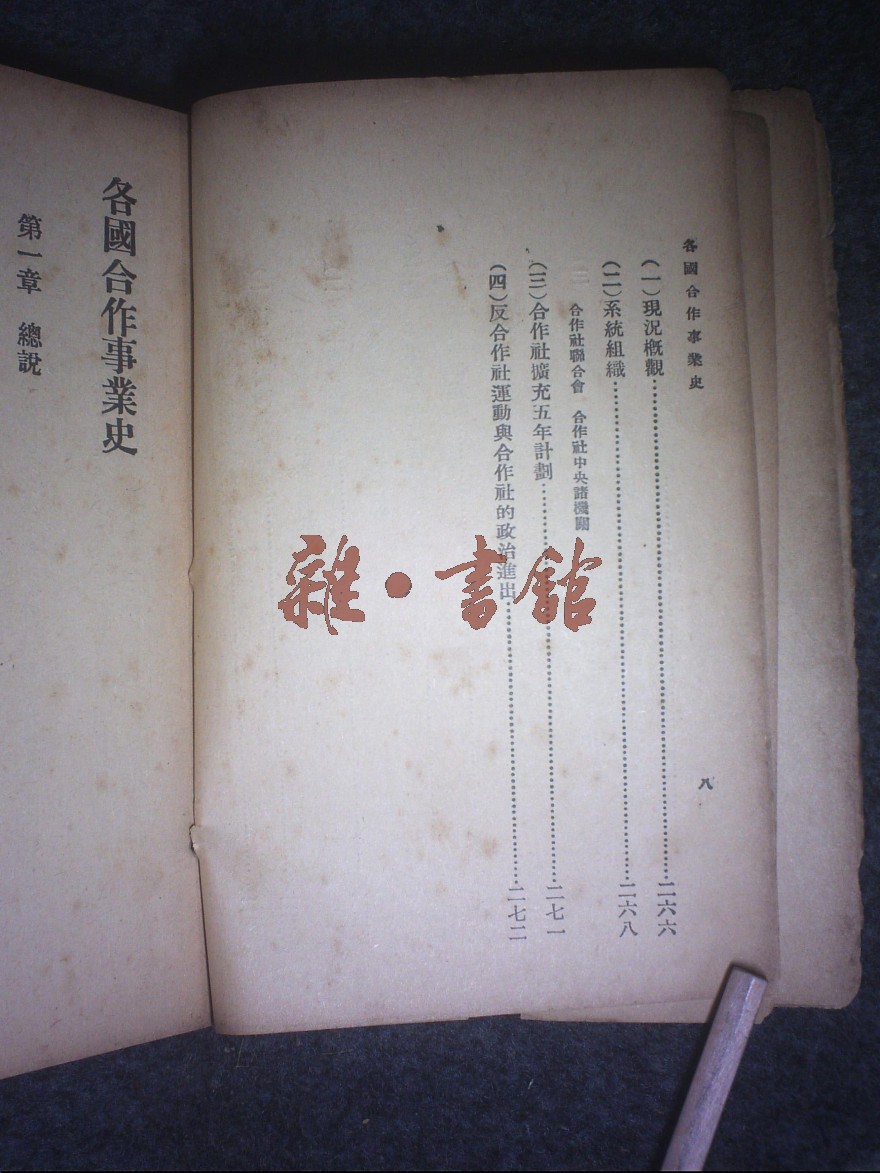 各國合作事業史
八
(一)現況槪觀……二六六
(二)系統組織……二六八
合作社聯合會 合作社中央諸機關
(三)合作社擴充五年計劃……二七一
(四)反合作社運動與合作社的政治進出……二七二
各國合作事業史
第一章 總說
雜·書館